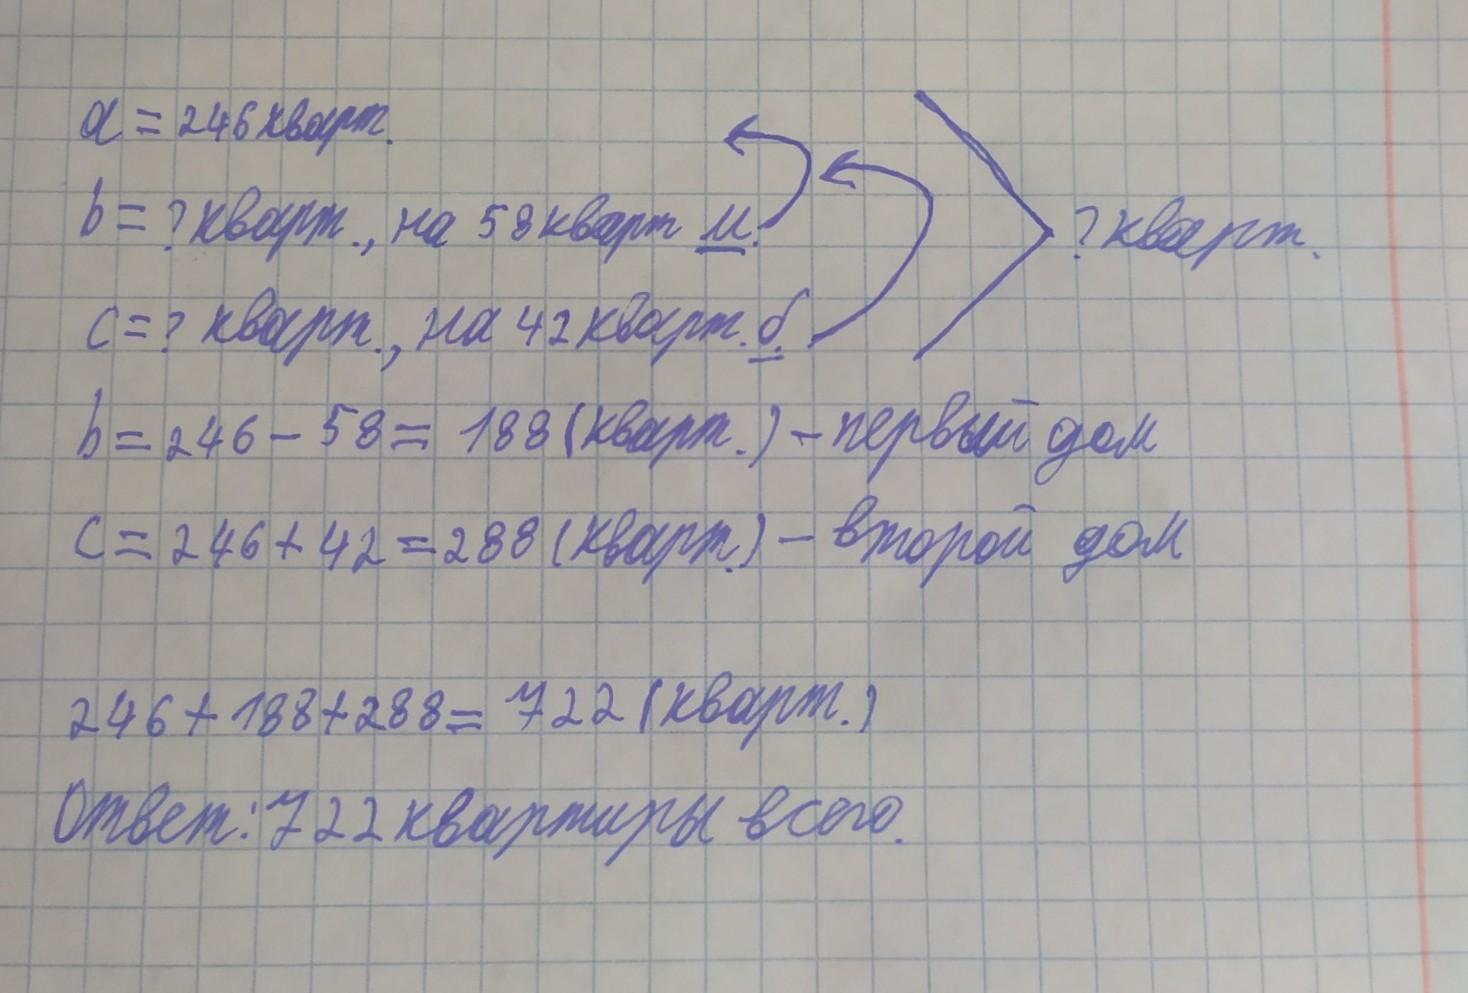 a = 246 кварт.
b = ? кварт., на 58 кварт м.
c = ? кварт., на 42 кварт. б.
? кварт.
b = 246 - 58 = 188 (кварт.) - первый дом
c = 246 + 42 = 288 (кварт.) - второй дом
246 + 188 + 288 = 722 (кварт.)
Ответ: 722 квартиры всего.